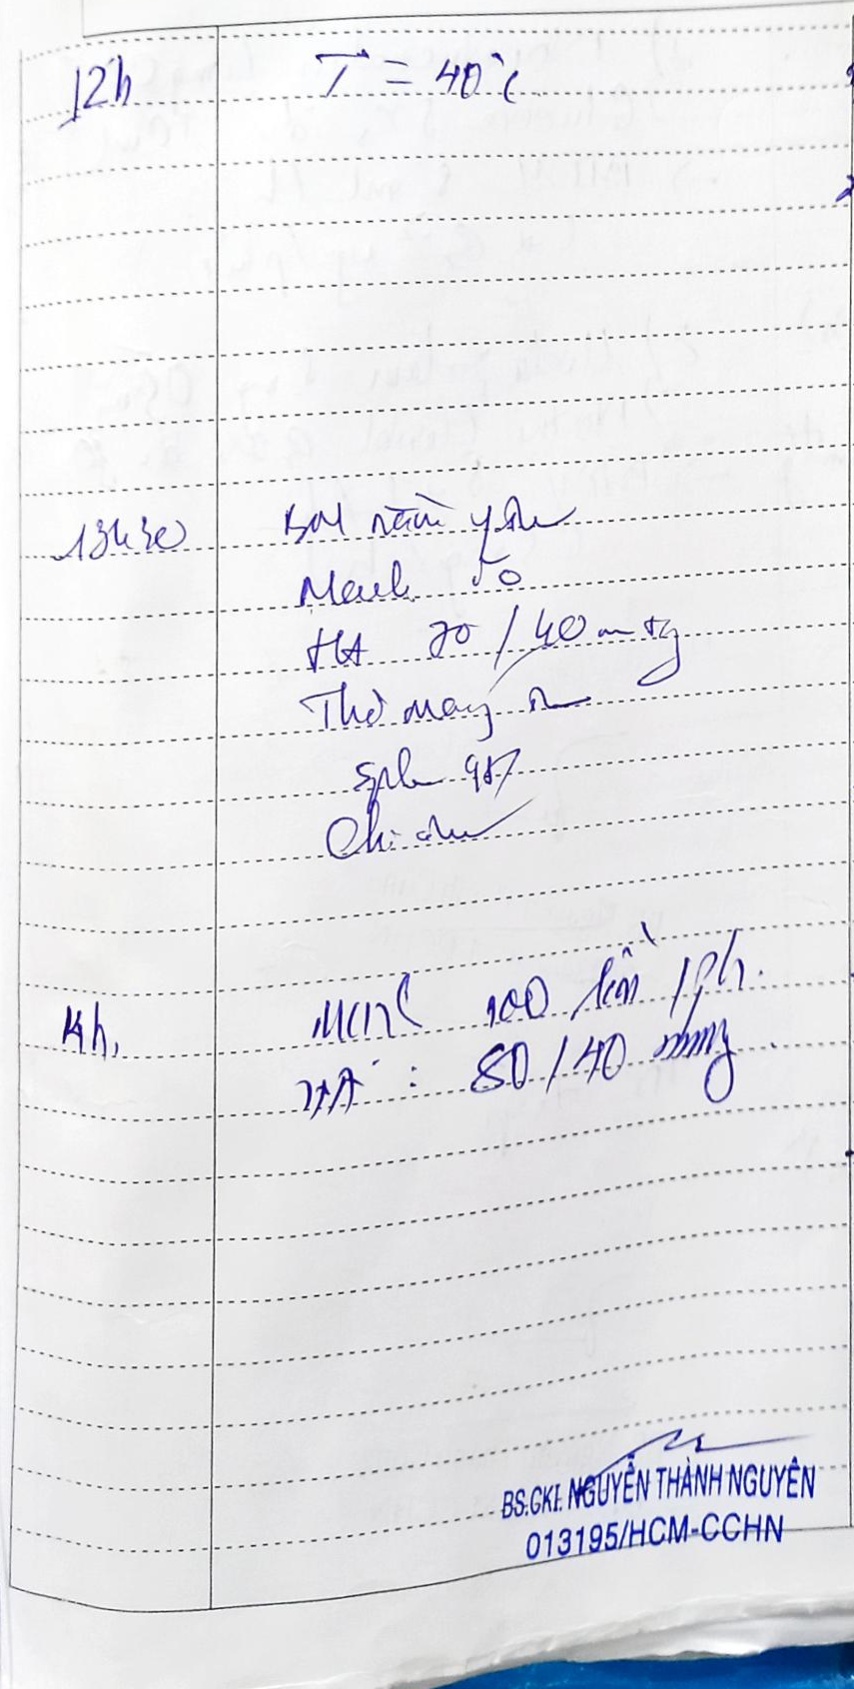 12h T = 40°C
13h30 BN nằm yên
Mạch 50
HA 70/40 mmHg
Thở máy
SpO2 98%
14h. Mạch 100 lần/ph.
HA: 80/40 mmHg.
BS.CKI. NGUYỄN THÀNH NGUYÊN
013195/HCM-CCHN